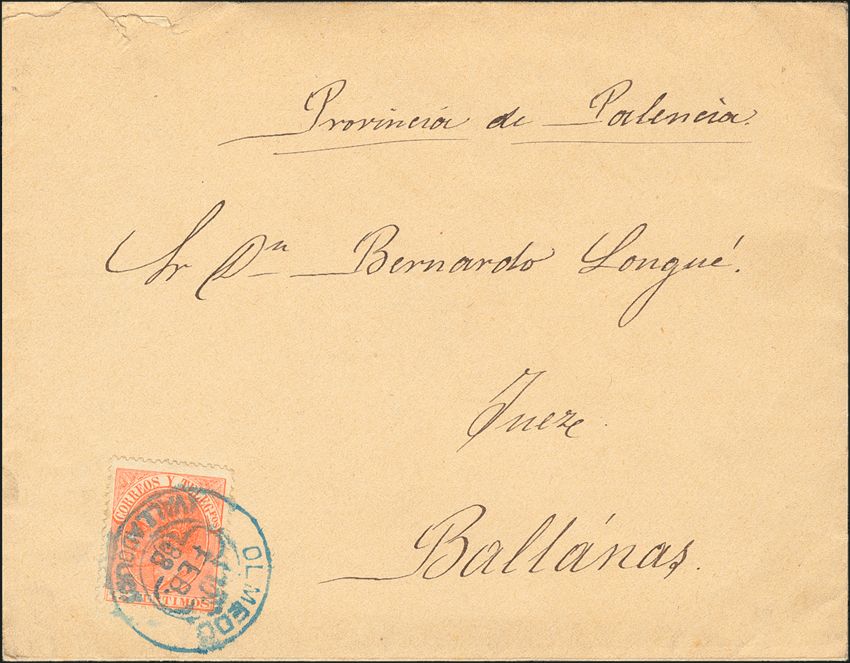 Provincia de Palencia.
Sr Dn Bernardo Longué.
Juez
Baltánas.
CORREOS Y TELEGFOS
OLMEDO
FEB
88